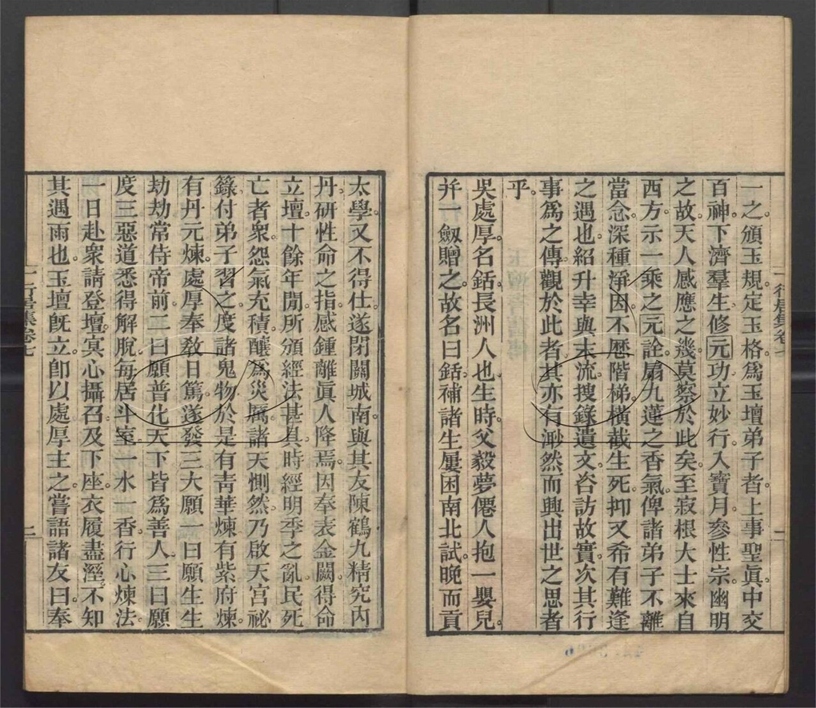 一之頒玉規定玉格爲玉壇弟子者上事聖眞中交
百神下濟羣生修元功立妙行入寶月參性宗幽明
之故天人感應之幾莫察於此矣至寂根大士來自
西方示一乘之元詮扇九蓮之香氣俾諸弟子不離
當念深種淨因不歷階梯橫截生死抑又希有難逢
之遇也紹升幸與末流搜錄遺文咨訪故實次其行
事爲之傳觀於此者其亦有渺然而興出世之思者
乎
吳處厚名銛長洲人也生時父毅夢僊人抱一嬰兒
幷一劔贈之故名曰銛補諸生屢困南北試晚而貢
一行居集卷七
二
太學又不得仕遂閉關城南與其友陳鶴九精究內
丹研性命之指感鍾離眞人降焉因奉表金闕得命
立壇十餘年閒所頒經法甚具時經明季之亂民死
亡者衆怨氣充積釀爲災厲諸天惻然乃啟天宮祕
籙付弟子習之度諸鬼物於是有靑華煉有紫府煉
有丹元煉處厚奉敎日篤遂發三大願一曰願生生
劫劫常侍帝前二曰願普化天下皆爲善人三曰願
度三惡道悉得解脫每居斗室一水一香行心煉法
一日赴衆請登壇冥心攝召及下座衣履盡溼不知
其遇雨也玉壇旣立卽以處厚主之嘗語諸友曰奉
一行居集卷七
二